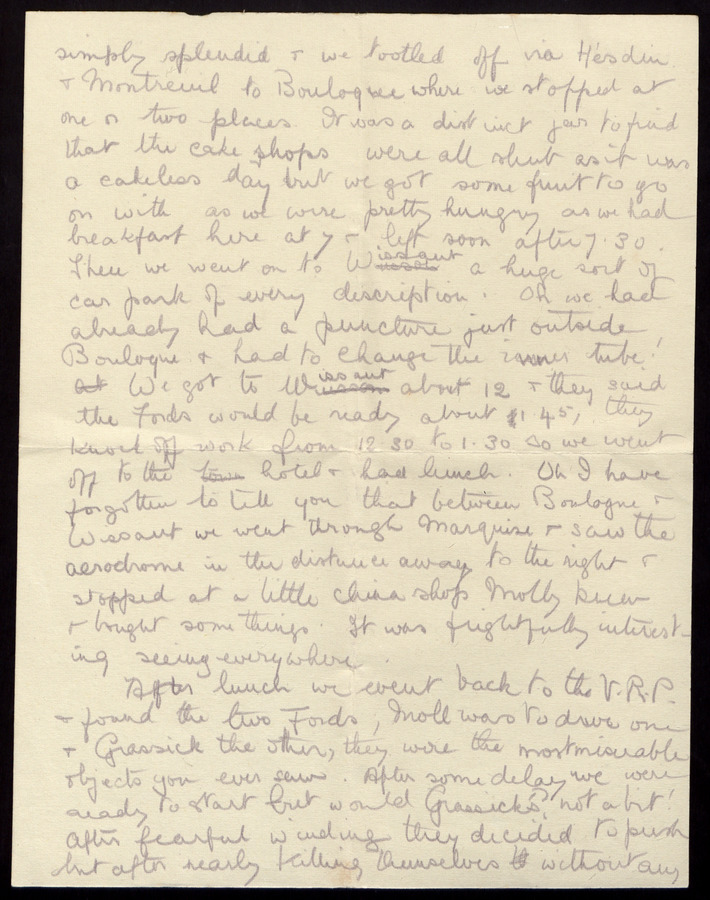 simply splendid & we tootled off via Hesdin
& Montreuil to Boulogne where we stopped at
one or two places. It was a distinct jar to find
that the cake shops were all shut as it was
a cakeless day but we got some fruit to go
on with as we were pretty hungry as we had
breakfast here at 7 & left soon after 7.30.
Then we went on to Wissant a huge sort of
car park of every description. Oh we had
already had a puncture just outside
Boulogne & had to change the inner tube!
at We got to Wissant about 12 & they said
the Fords would be ready about 1.45, they
knock off work from 12 30 to 1.30 so we went
off to the town hotel & had lunch. Oh I have
forgotten to tell you that between Boulogne &
Wissant we went through Marquise & saw the
aerodrome in the distance away to the right &
stopped at a little china shop Molly knew
& bought some things. It was frightfully interest-
ing seeing everywhere.
After lunch we went back to the V.R.P.
& found the two Fords, Moll was to drive one
& Grassick the other, they were the most miserable
objects you ever saw. After some delay we were
ready to start but would Grassick's? not a bit!
After fearful winding they decided to push
but after nearly killing themselves without any